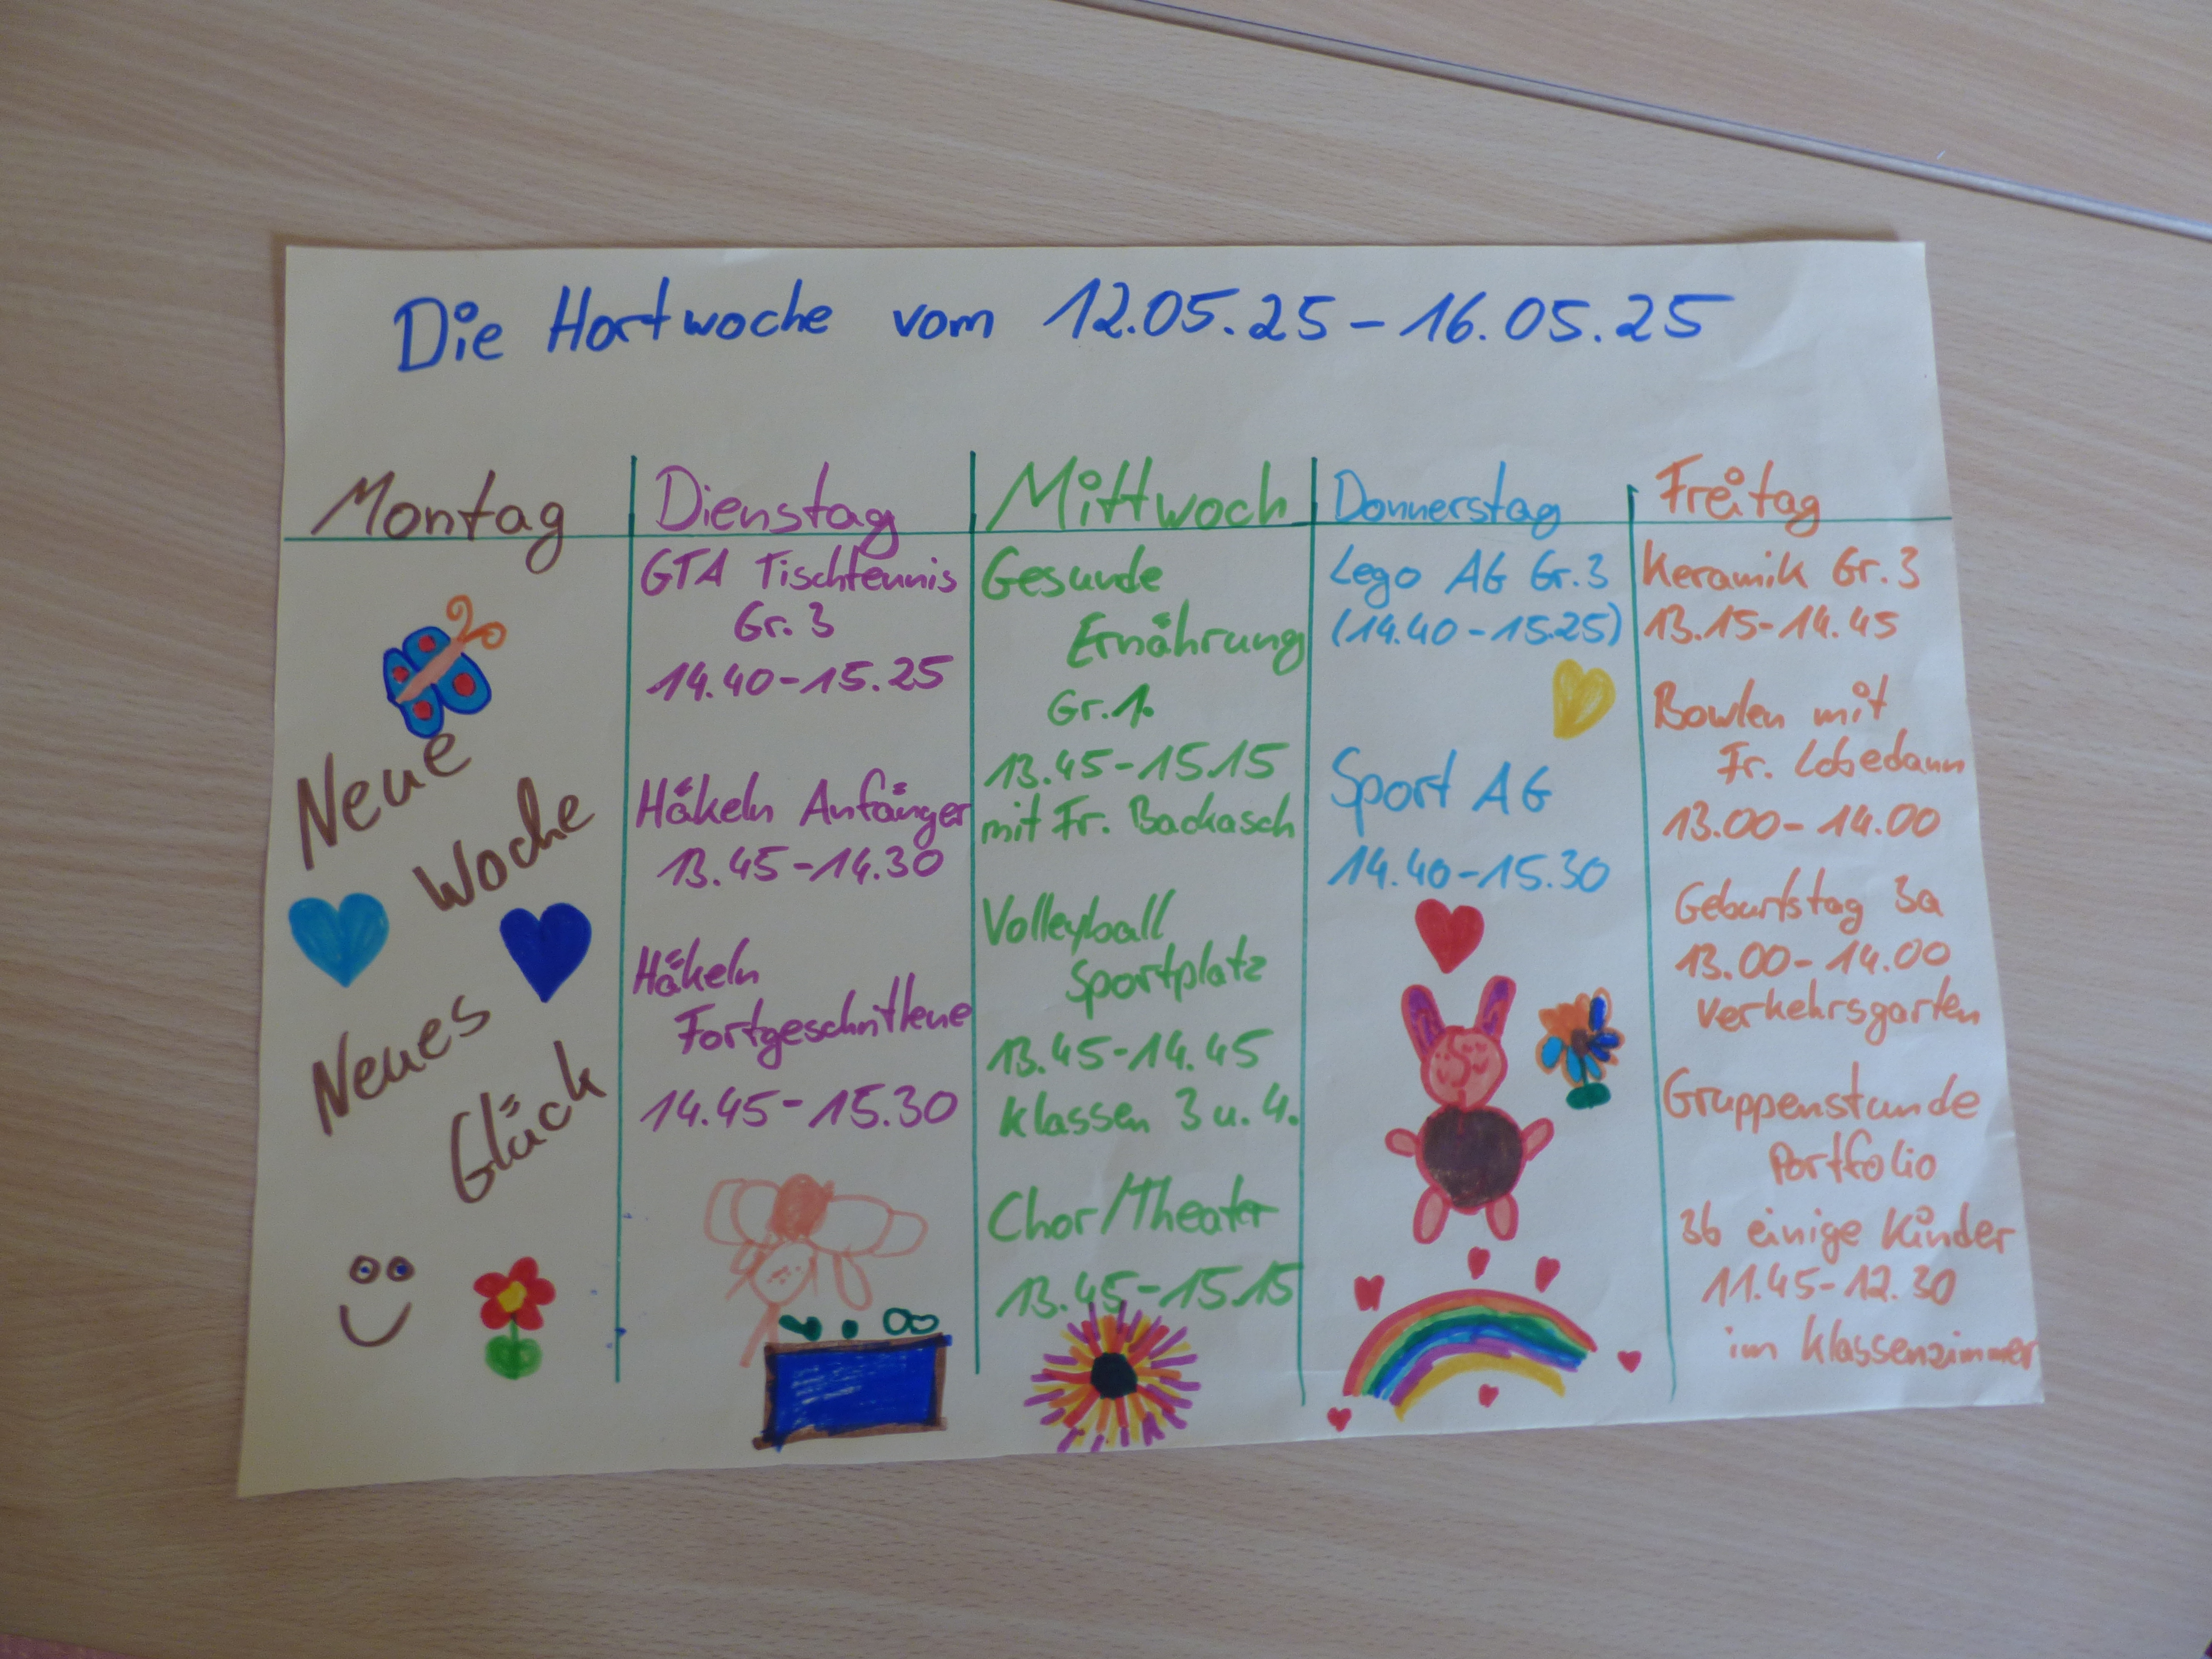 Die Hortwoche vom 12.05.25 - 16.05.25
Montag
Neue
Woche
Neues
Glück
Dienstag
GTA Tischtennis
Gr. 3
14.40 - 15.25
Häkeln Anfänger
13.45 - 14.30
Häkeln
Fortgeschrittene
14.45 - 15.30
Mittwoch
Gesunde
Ernährung
Gr. 1.
13.45 - 15.15
mit Fr. Backasch
Volleyball
Sportplatz
13.45 - 14.45
Klassen 3 u. 4.
Chor/Theater
13.45 - 15.15
Donnerstag
Lego AG Gr. 3
(14.40 - 15.25)
Sport AG
14.40 - 15.30
Freitag
Keramik Gr. 3
13.15 - 14.45
Bowlen mit
Fr. Lobedann
13.00 - 14.00
Geburtstag 3a
13.00 - 14.00
Verkehrsgarten
Gruppenstunde
Portfolio
3b einige Kinder
11.45 - 12.30
im Klassenzimmer